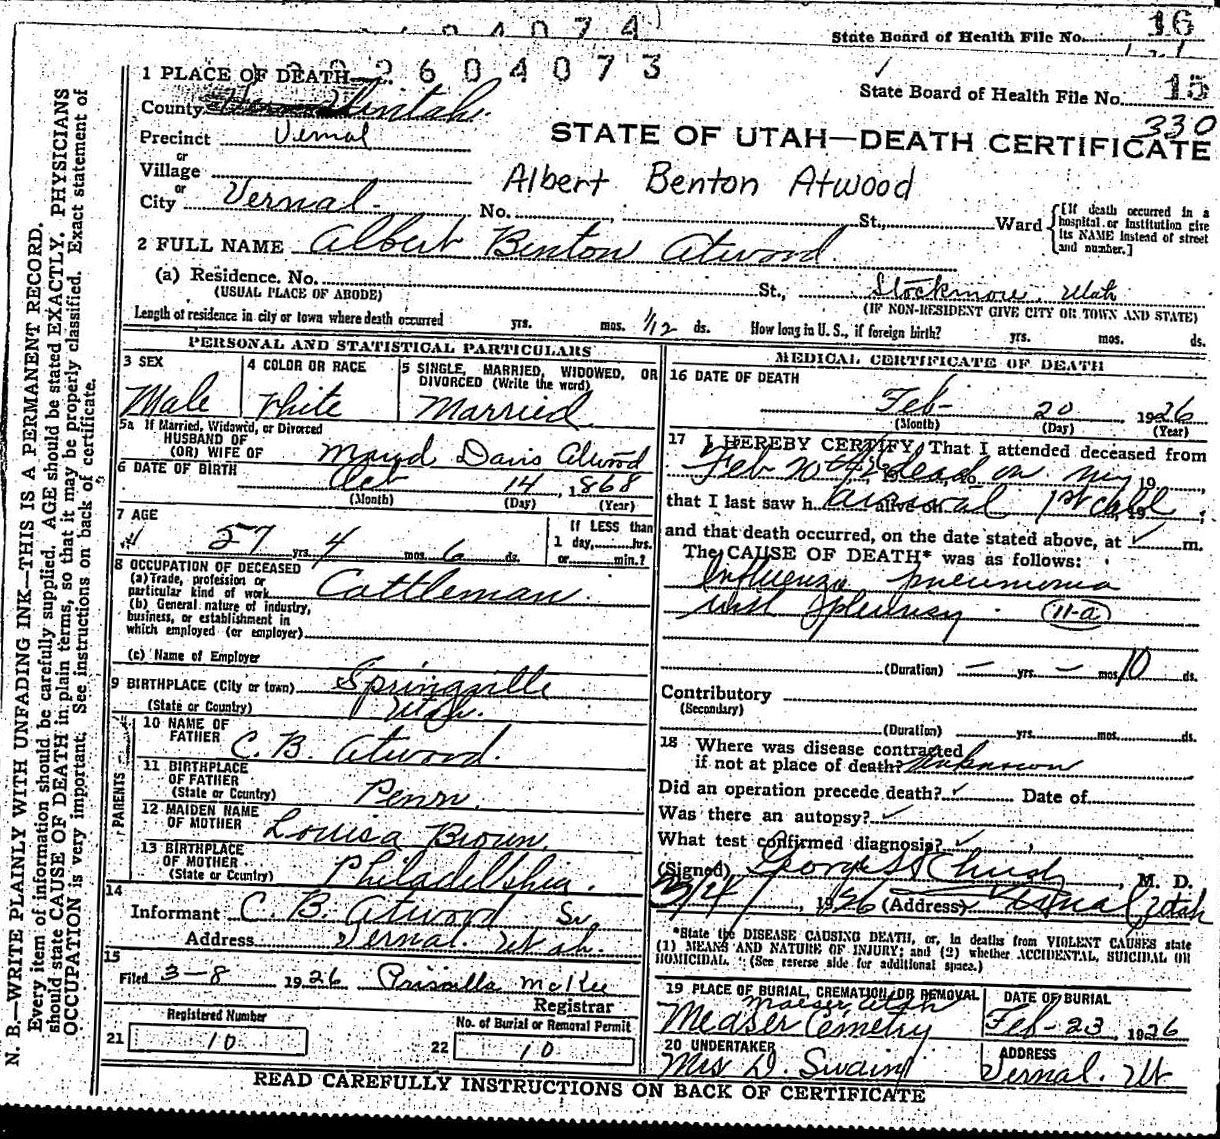 State Board of Health File No. 16
2604073
State Board of Health File No. 15
330
1 PLACE OF DEATH
County Uintah
Precinct Vernal
or
Village
or
City Vernal No. St., Ward
[If death occurred in a hospital or institution give its NAME instead of street and number.]
STATE OF UTAH—DEATH CERTIFICATE
Albert Benton Atwood
2 FULL NAME Albert Benton Atwood
(a) Residence. No. St., Stockmore, Utah
(USUAL PLACE OF ABODE) (IF NON-RESIDENT GIVE CITY OR TOWN AND STATE)
Length of residence in city or town where death occurred yrs. mos. 1/12 ds. How long in U. S., if foreign birth? yrs. mos. ds.
PERSONAL AND STATISTICAL PARTICULARS
3 SEX Male
4 COLOR OR RACE White
5 SINGLE, MARRIED, WIDOWED, OR DIVORCED (Write the word) Married
5a If Married, Widowed, or Divorced
HUSBAND OF
(OR) WIFE OF Maud Davis Atwood
6 DATE OF BIRTH Oct 14, 1868
(Month) (Day) (Year)
7 AGE 57 yrs. 4 mos. 6 ds.
If LESS than 1 day, hrs. or min.?
8 OCCUPATION OF DECEASED
(a) Trade, profession or particular kind of work Cattleman
(b) General nature of industry, business, or establishment in which employed (or employer)
(c) Name of Employer
9 BIRTHPLACE (City or town) Springville
(State or Country) Utah.
PARENTS
10 NAME OF FATHER C. B. Atwood.
11 BIRTHPLACE OF FATHER (State or Country) Penn.
12 MAIDEN NAME OF MOTHER Louisa Brown
13 BIRTHPLACE OF MOTHER (State or Country) Philadelphia.
14
Informant C. B. Atwood Sr.
Address Vernal. Utah.
15
Filed 3-8 1926 Priscilla McKee
Registrar
21 Registered Number 10
22 No. of Burial or Removal Permit 10
MEDICAL CERTIFICATE OF DEATH
16 DATE OF DEATH
Feb- 20 1926
(Month) (Day) (Year)
17 I HEREBY CERTIFY, That I attended deceased from
Feb 20 dead on my 19
that I last saw h arrival alive on 1st call 19
and that death occurred, on the date stated above, at m.
The CAUSE OF DEATH* was as follows:
Influenza pneumonia
with pleurisy. 11-a
(Duration) — yrs. — mos. 10 ds.
Contributory
(Secondary)
(Duration) yrs. mos. ds.
18 Where was disease contracted
if not at place of death? Unknown
Did an operation precede death? Date of
Was there an autopsy?
What test confirmed diagnosis?
(Signed) George H Christy, M. D.
1926 (Address) Vernal, Utah
*State the DISEASE CAUSING DEATH, or, in deaths from VIOLENT CAUSES state
(1) MEANS AND NATURE OF INJURY; and (2) whether ACCIDENTAL, SUICIDAL OR
HOMICIDAL. (See reverse side for additional space.)
19 PLACE OF BURIAL, CREMATION OR REMOVAL Maeser Utah
Measer Cemetry
DATE OF BURIAL Feb-23 1926
20 UNDERTAKER Mrs D. Swain
ADDRESS Vernal. Ut
READ CAREFULLY INSTRUCTIONS ON BACK OF CERTIFICATE
N. B.—WRITE PLAINLY WITH UNFADING INK—THIS IS A PERMANENT RECORD.
Every item of information should be carefully supplied. AGE should be stated EXACTLY. PHYSICIANS
should state CAUSE OF DEATH in plain terms, so that it may be properly classified. Exact statement of
OCCUPATION is very important. See instructions on back of certificate.